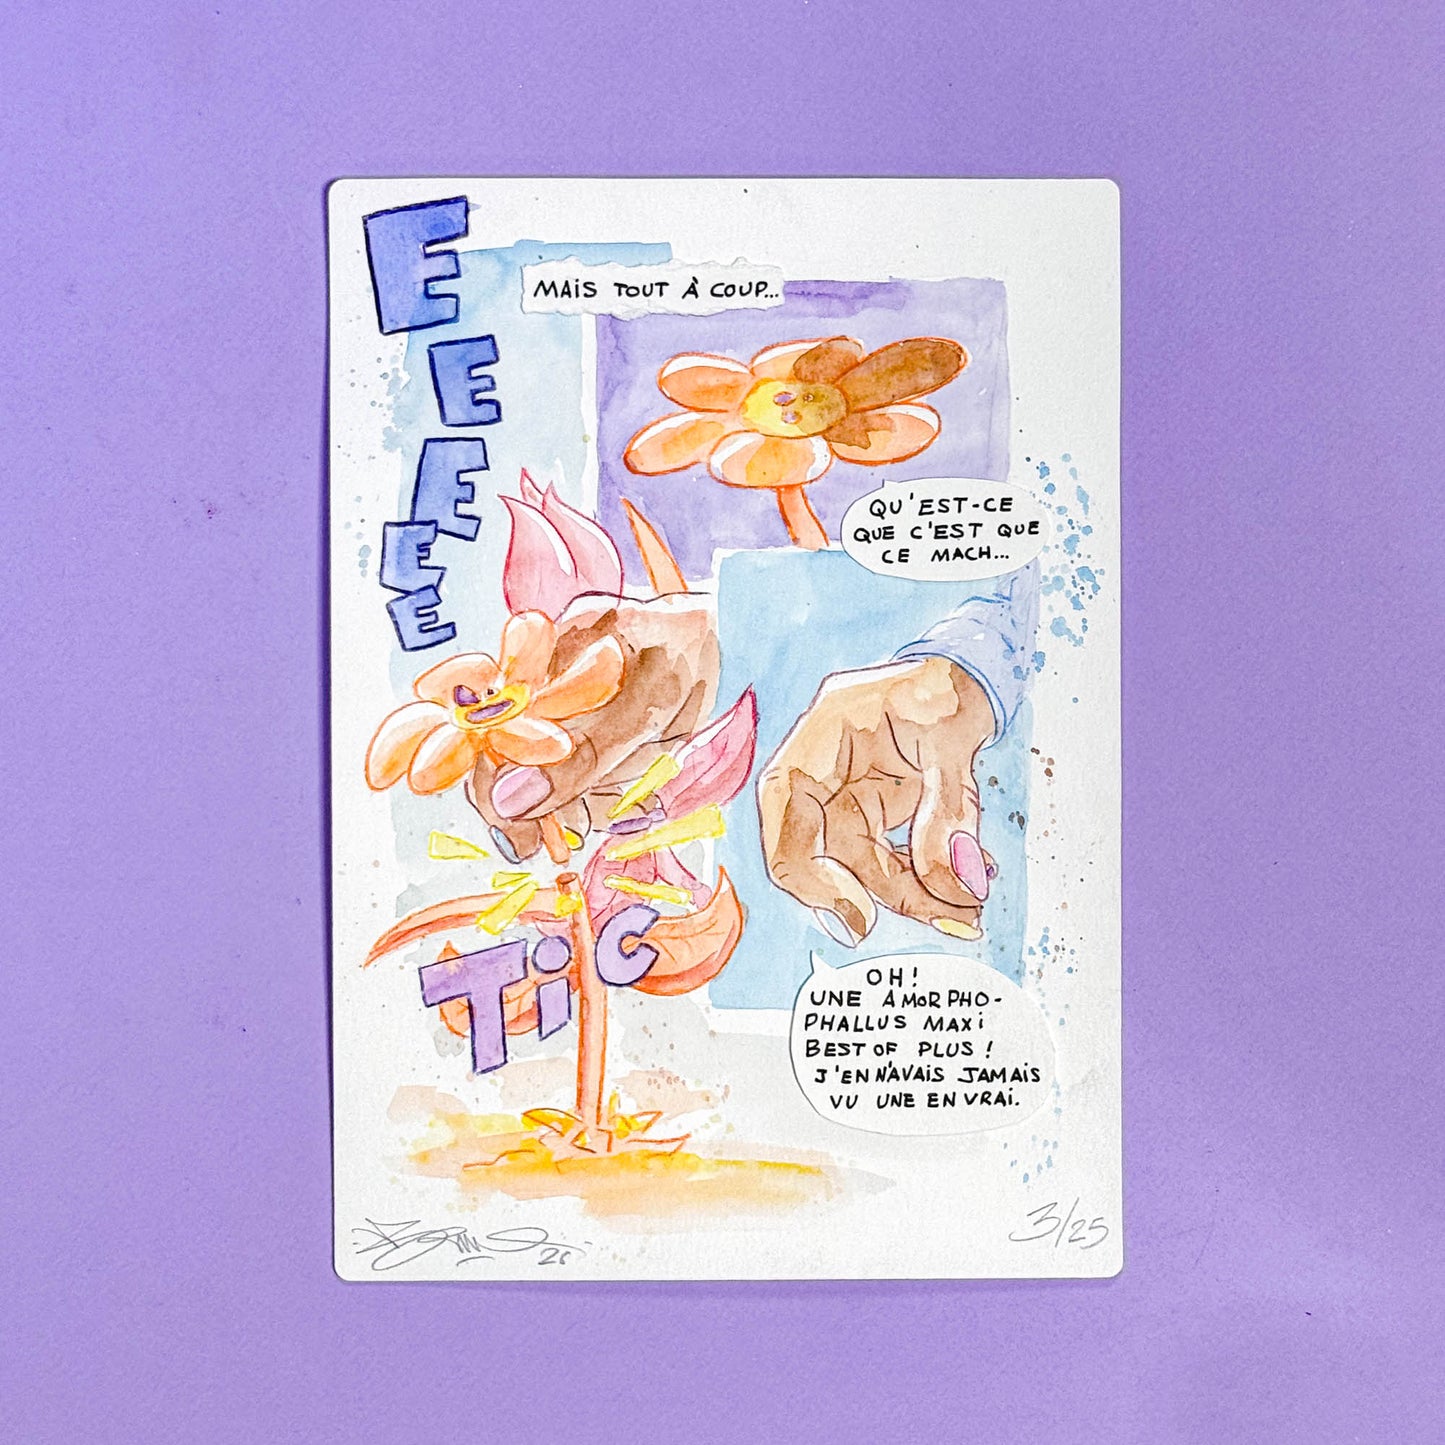 E
E
E
E
E
MAiS TOUT À COUP...
QU'EST-CE
QUE C'EST QUE
CE MACH...
TiC
OH!
UNE AMORPHO-
PHALLUS MAXi
BEST OF PLUS!
J'EN N'AVAIS JAMAiS
VU UNE EN VRAi.
3/25